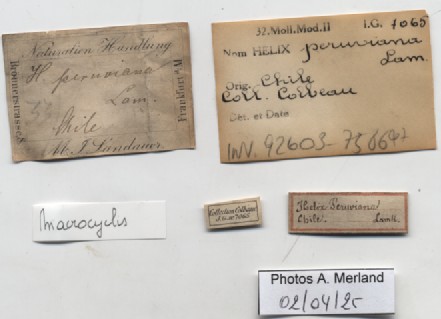 Naturalien Handlung
H. peruviana
Lam.
Chile
M. J. Landauer
Frankfurt a/M.
32.Moll.Mod.II I.G. 7065
Nom HELIX peruviana
Lam.
Orig. Chile
Coll. Colbeau
Obt. et Date
INV. 92603-756647
Macrocyclis
Collection Colbeau
I.G. n° 7065
Helix Peruviana
Chile. Lamk.
Photos A. Merland
02/04/25